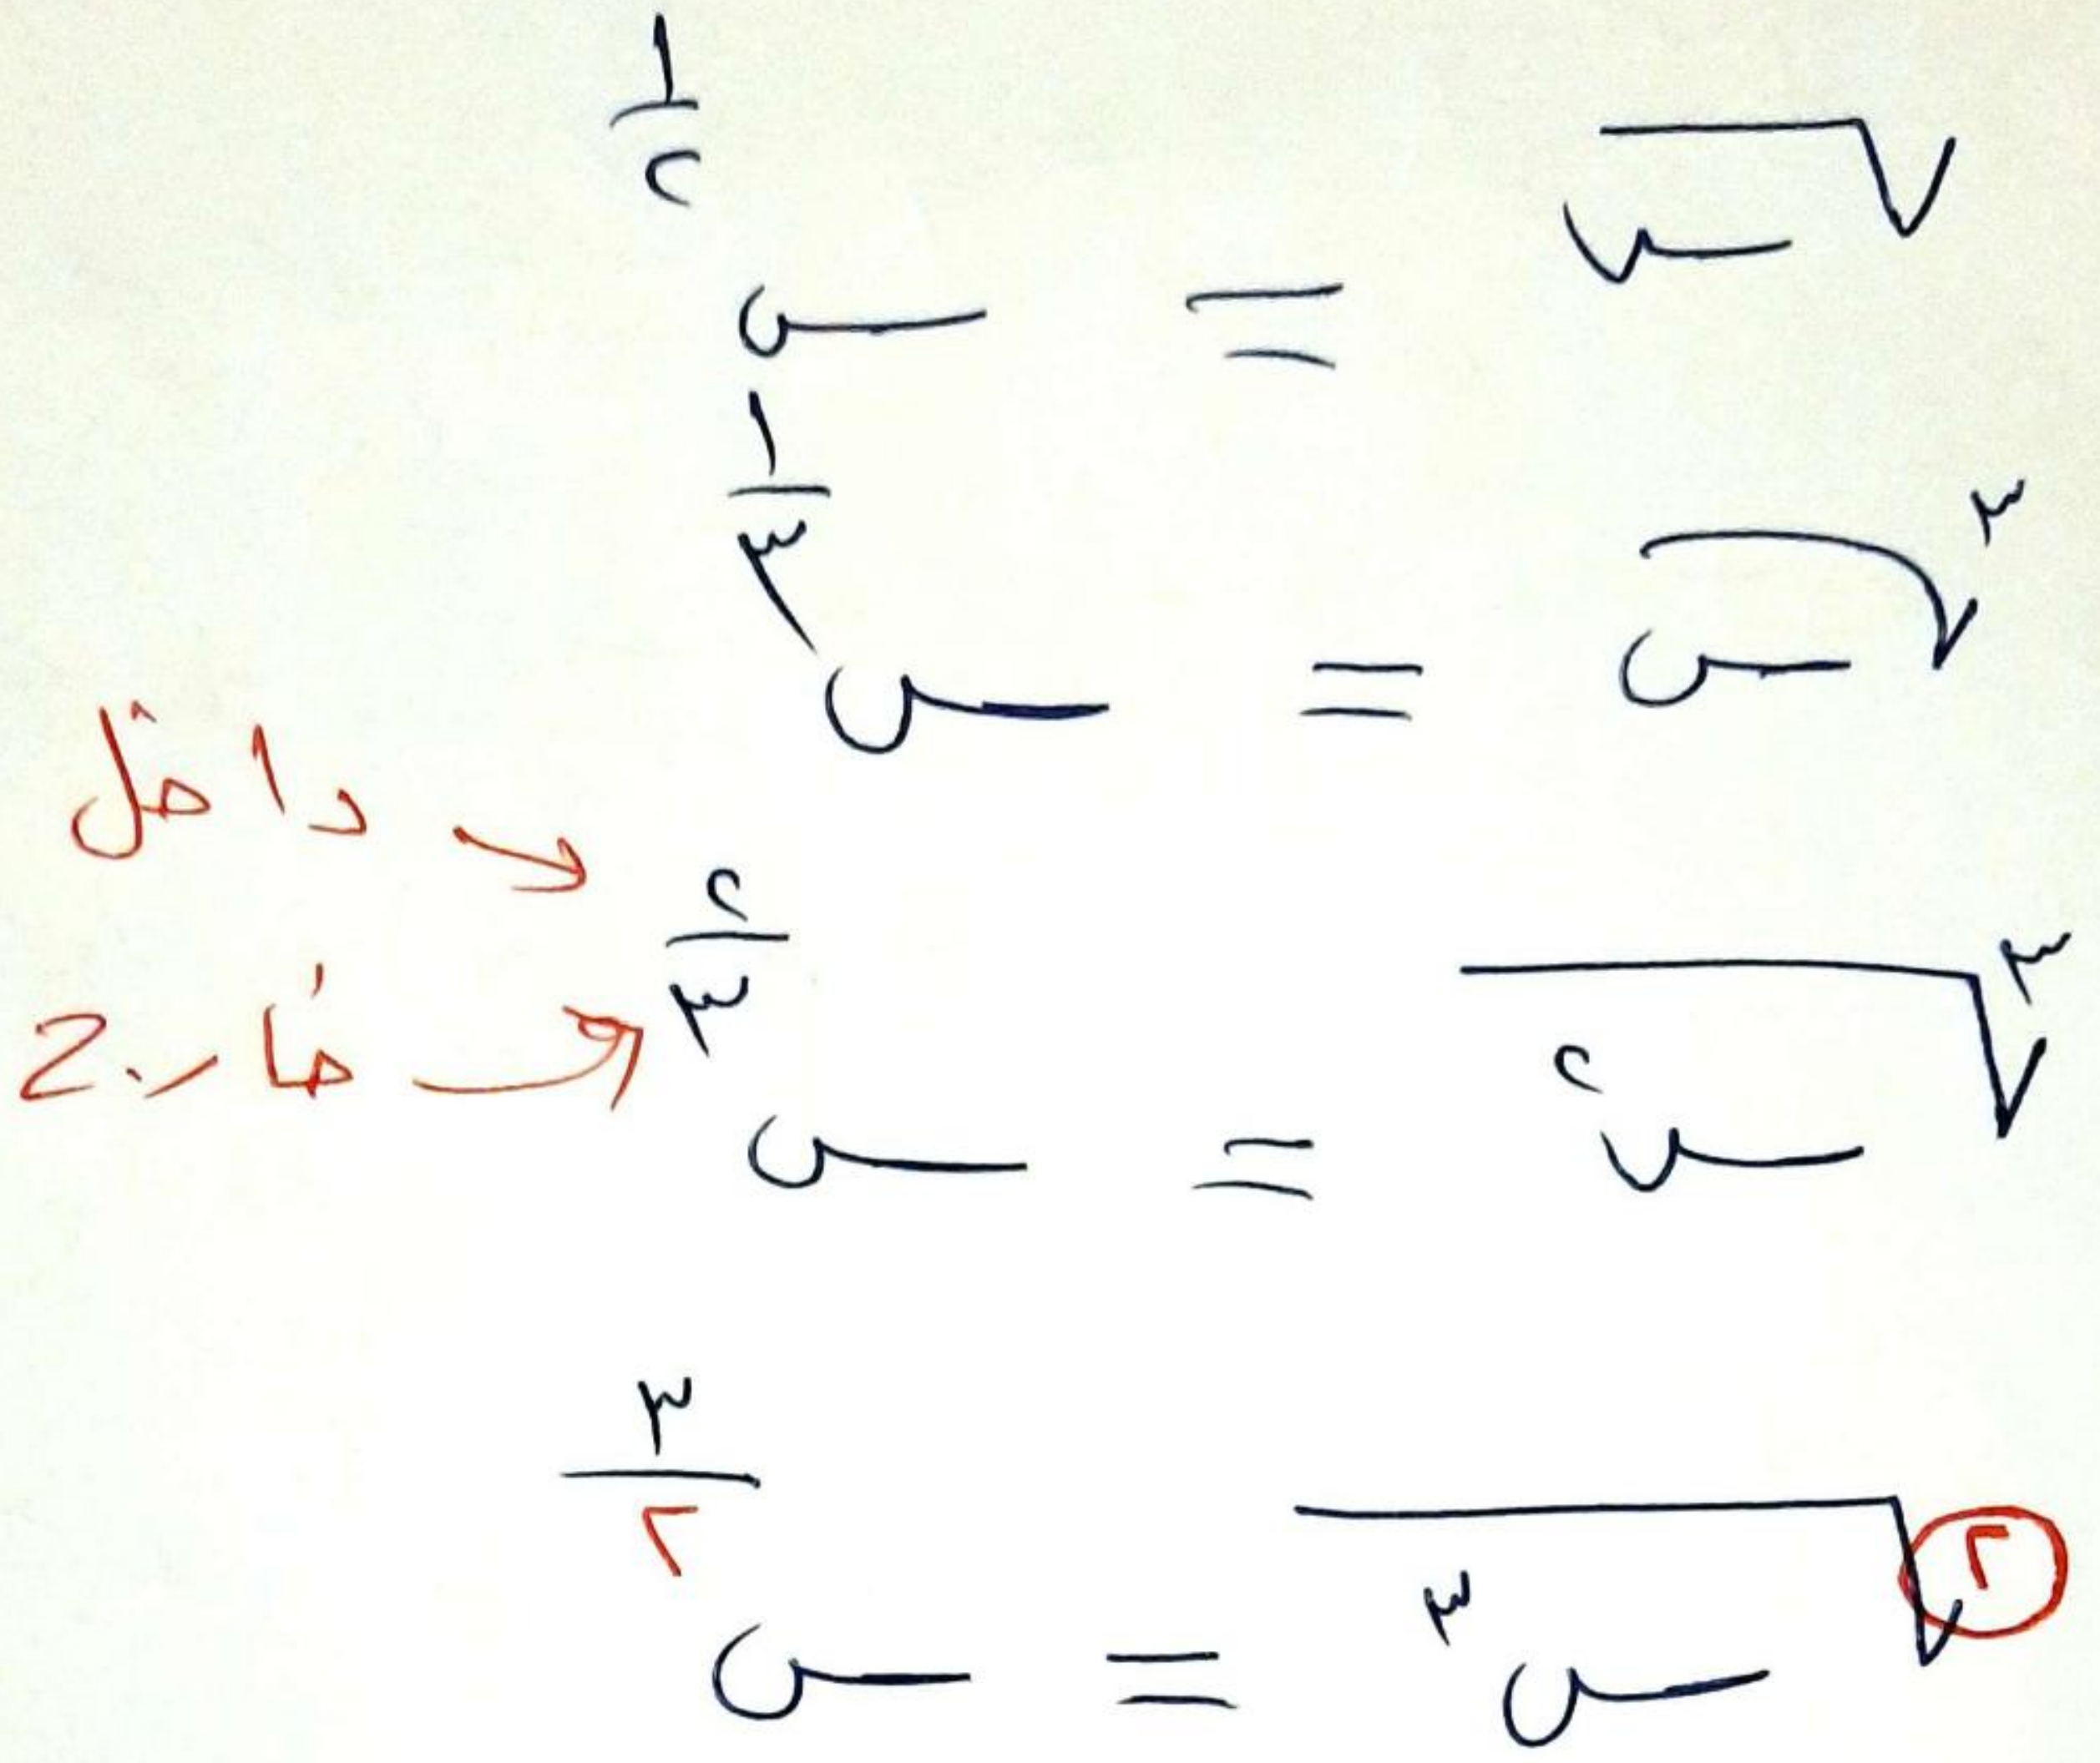 √س = س^(١/٢)
٣√س = س^(١/٣)
٣√س^٢ = س^(٢/٣)
داخل
خارج
٢√س^٣ = س^(٣/٢)